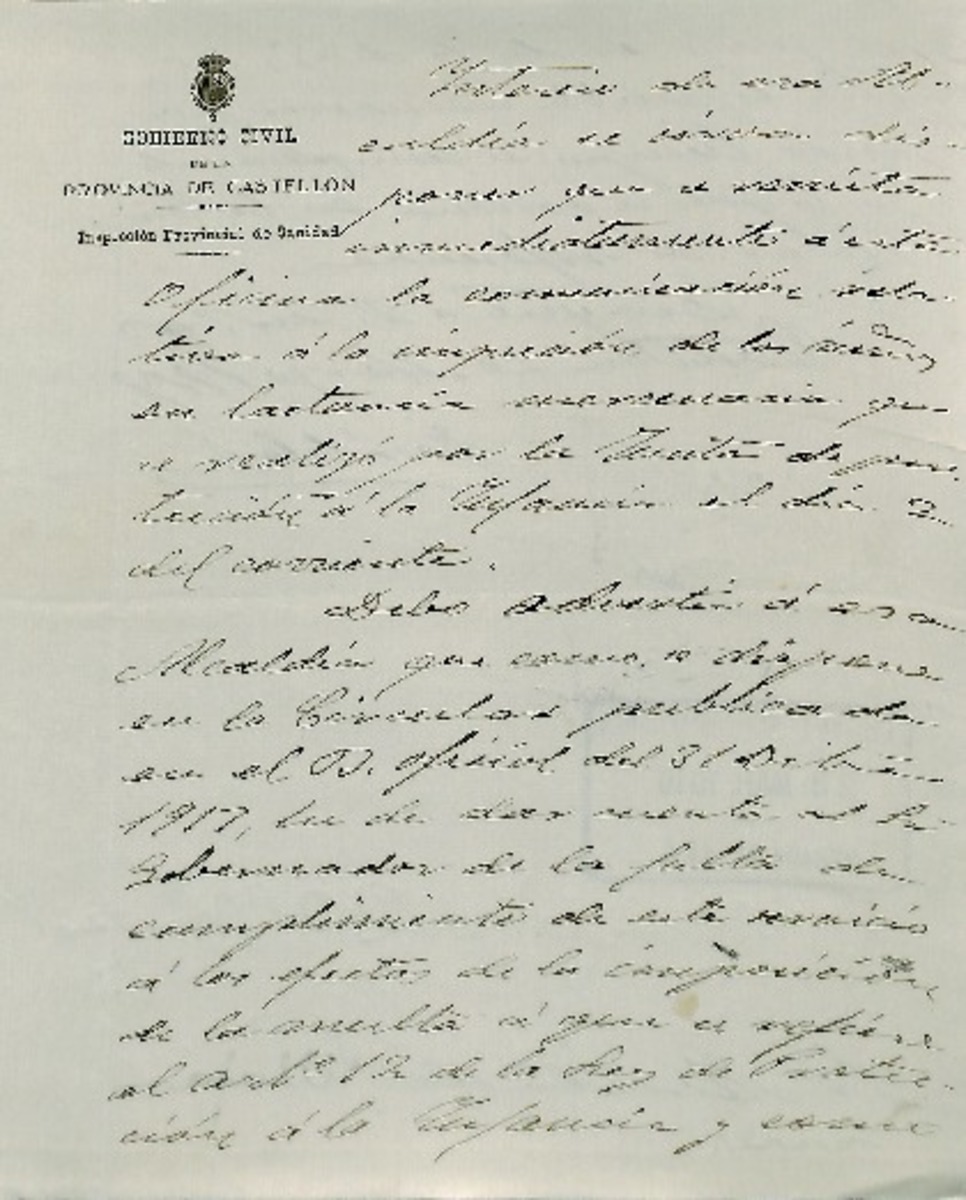 GOBIERNO CIVIL
DE LA
PROVINCIA DE CASTELLÓN
Inspección Provincial de Sanidad
Intereso de esa Al-
caldía se sirva dis-
poner que se remita
inmediatamente á esta
Oficina la comunicación rela-
tiva á la inspección de los niños
en lactancia mercenaria que
se realizó por la Junta de pro-
tección á la Infancia el día 2
del corriente.
Debo advertir á esa
Alcaldía que como se dispone
en la Circular publicada
en el B. Oficial del 31 Dicbre
1917, he de dar cuenta al Sr
Gobernador de la falta de
cumplimiento de este servicio
á los efectos de la imposición
de la multa á que se refiere
el artº 12 de la Ley de Protec-
ción á la Infancia y como